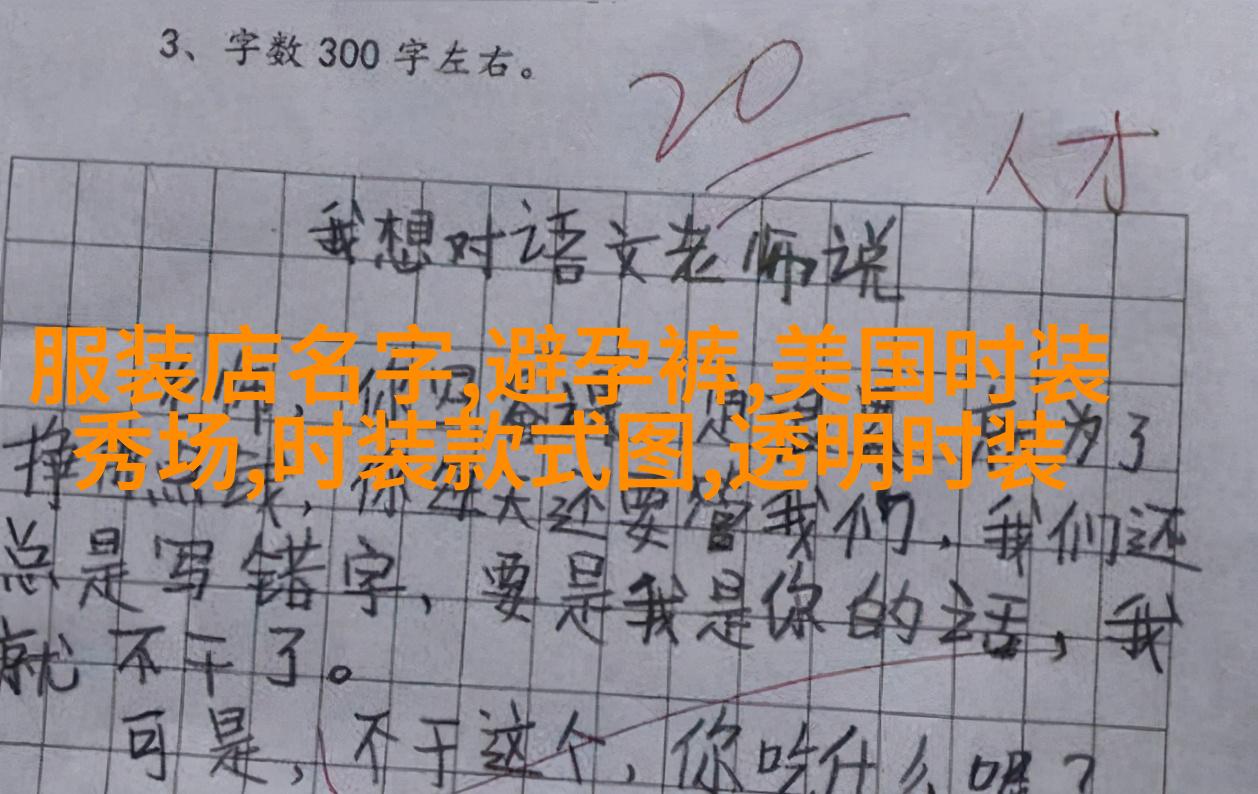 3、字数300字左右。
20
人才
我想对语文老师说
服装店名字,避孕裤,美国时装
秀场,时装款式图,透明时装
为了
挣 点钱,你每天还要管我们,我们还
总是写错字,要是我是你的话,我
就不干了。
可是,不干这个,你吃什么呢?